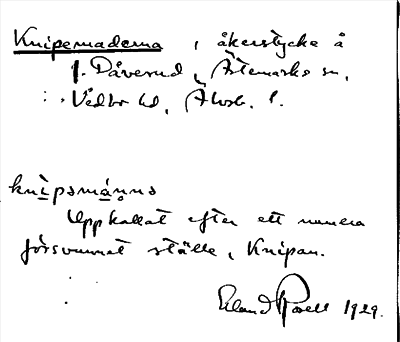 Knipemaderna, åkerstycke å
f. Påverud, Ärtemarks sn,
Vedbo hd, Älvsb. l.
knìpəmá̱nnə
Uppkallat efter ett numera
försvunnet ställe, Knipan.
Erland Rosell 1929.